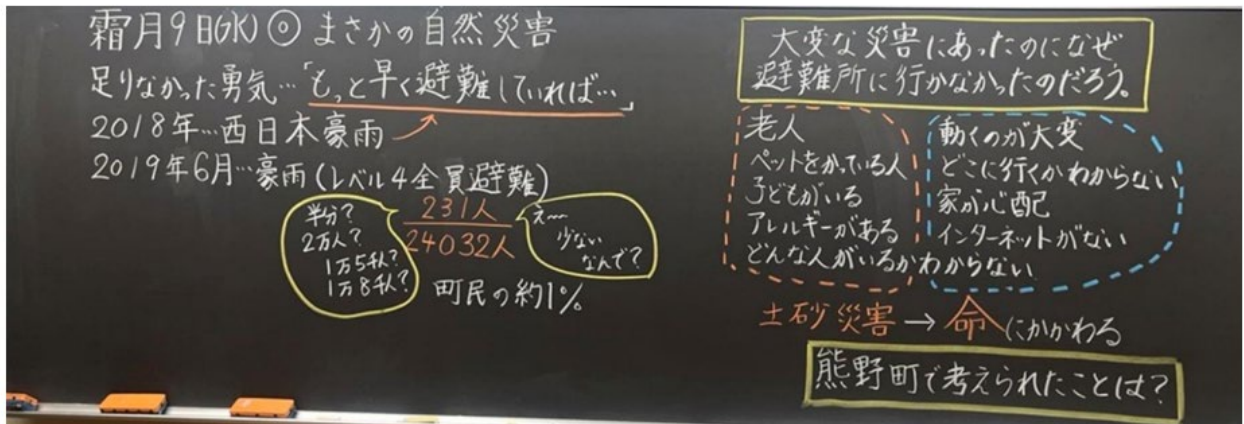 霜月9日(水)◎まさかの自然災害
足りなかった勇気…「もっと早く避難していれば…」
2018年…西日本豪雨
2019年6月…豪雨(レベル4全員避難)
半分?
2万人?
1万5千人?
1万8千人?
231人
24032人
え〜
少ない
なんで?
町民の約1%
大変な災害にあったのになぜ
避難所に行かなかったのだろう。
老人
ペットをかっている人
子どもがいる
アレルギーがある
どんな人がいるかわからない
動くのが大変
どこに行くかわからない
家が心配
インターネットがない
土砂災害→命にかかわる
熊野町で考えられたことは?